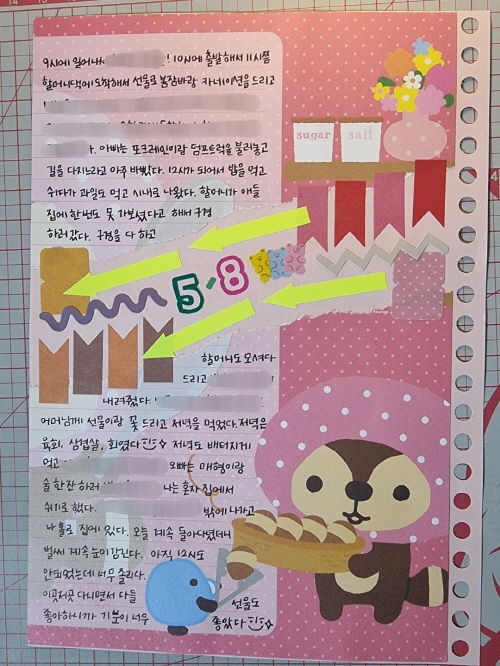 9시에 일어나 ! 10시에 출발해서 11시쯤
할머니댁에 도착해서 선물로 봄잠바랑 카네이션을 드리고
. 아빠는 포크레인이랑 덤프트럭을 불러놓고
길을 다지느라고 아주 바빴다. 12시가 되어서 밥을 먹고
쉬다가 과일도 먹고 시내로 나왔다. 할머니가 애들
집에 한번도 못 가보셨다고 해서 구경
하러갔다. 구경을 다 하고
sugar salt
5·8
할머니도 모셔다
드리고
내려줬다.
어머님께 선물이랑 꽃 드리고 저녁을 먹었다. 저녁은
육회, 삼겹살, 회였다 저녁도 배터지게
먹고 오빠는 매형이랑
술 한잔 하러 나는 혼자 집에서
쉬기로 했다. 밖에 나가고
나 홀로 집에 있다. 오늘 계속 돌아다녔더니
벌써 계속 눈이 감긴다. 아직 12시도
안되었는데 너무 졸리다.
이곳저곳 다니면서 다들
좋아하니까 기분이 너무
선물도
좋았다